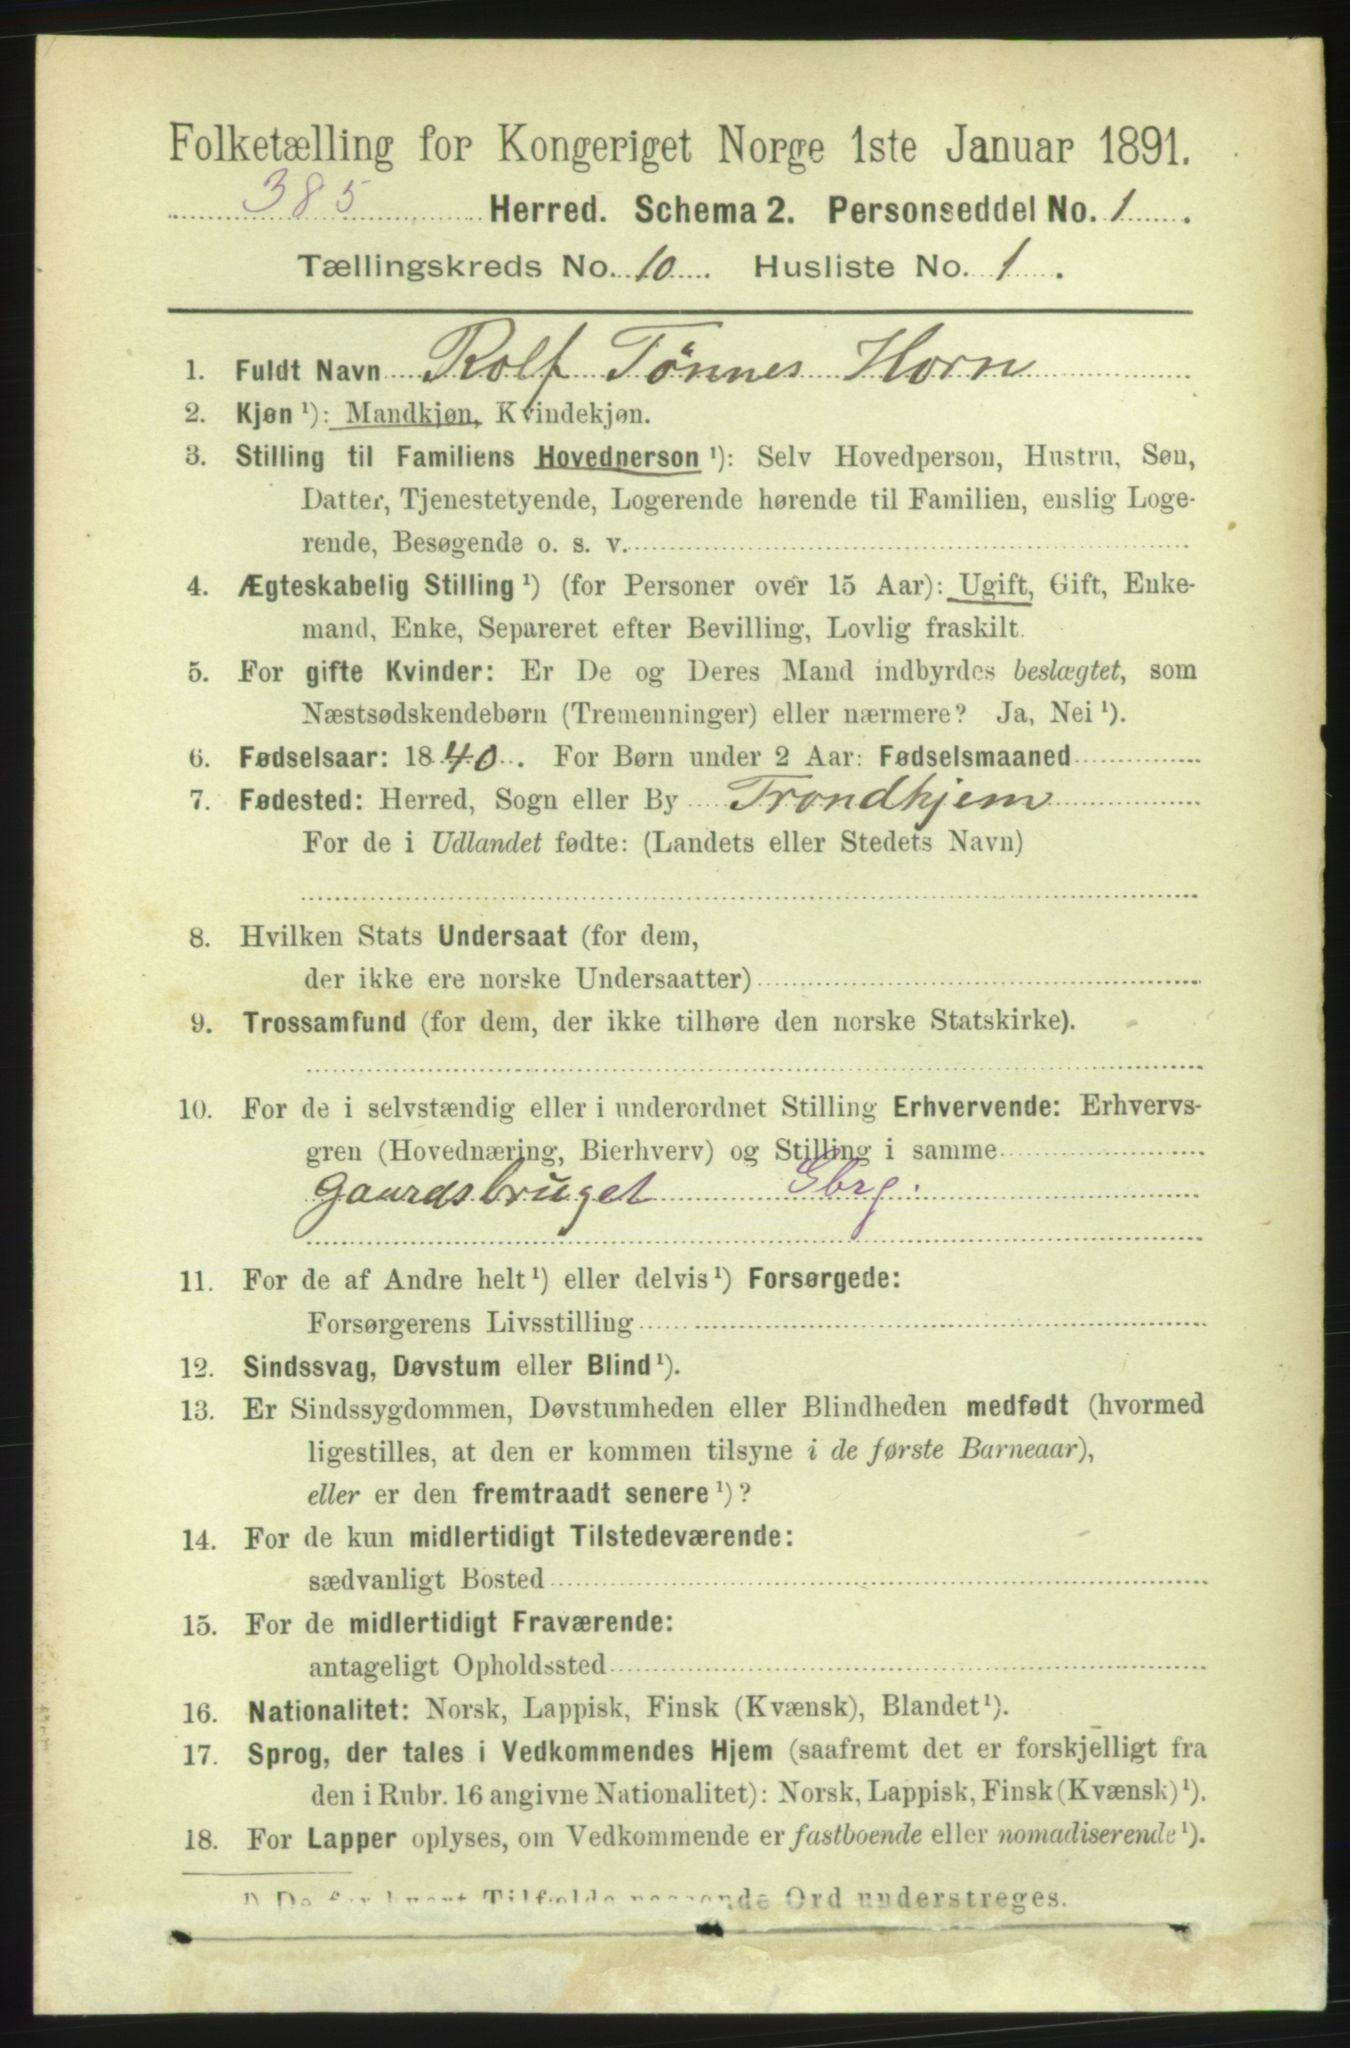 Folketælling for Kongeriget Norge 1ste Januar 1891.
385 Herred. Schema 2. Personseddel No. 1.
Tællingskreds No. 10. Husliste No. 1.
1. Fuldt Navn Rolf Tönnes Horn
2. Kjøn ¹): Mandkjøn, Kvindekjøn.
3. Stilling til Familiens Hovedperson ¹): Selv Hovedperson, Hustru, Søn,
Datter, Tjenestetyende, Logerende hørende til Familien, enslig Loge-
rende, Besøgende o. s. v.
4. Ægteskabelig Stilling ¹) (for Personer over 15 Aar): Ugift, Gift, Enke-
mand, Enke, Separeret efter Bevilling, Lovlig fraskilt.
5. For gifte Kvinder: Er De og Deres Mand indbyrdes beslægtet, som
Næstsødskendebørn (Tremenninger) eller nærmere? Ja, Nei ¹).
6. Fødselsaar: 1840. For Børn under 2 Aar: Fødselsmaaned
7. Fødested: Herred, Sogn eller By Trondhjem
For de i Udlandet fødte: (Landets eller Stedets Navn)
8. Hvilken Stats Undersaat (for dem,
der ikke ere norske Undersaatter)
9. Trossamfund (for dem, der ikke tilhøre den norske Statskirke).
10. For de i selvstændig eller i underordnet Stilling Erhvervende: Erhvervs-
gren (Hovednæring, Bierhverv) og Stilling i samme
Gaardsbruget Gbrg.
11. For de af Andre helt ¹) eller delvis ¹) Forsørgede:
Forsørgerens Livsstilling
12. Sindssvag, Døvstum eller Blind ¹).
13. Er Sindssygdommen, Døvstumheden eller Blindheden medfødt (hvormed
ligestilles, at den er kommen tilsyne i de første Barneaar),
eller er den fremtraadt senere ¹)?
14. For de kun midlertidigt Tilstedeværende:
sædvanligt Bosted
15. For de midlertidigt Fraværende:
antageligt Opholdssted
16. Nationalitet: Norsk, Lappisk, Finsk (Kvænsk), Blandet ¹).
17. Sprog, der tales i Vedkommendes Hjem (saafremt det er forskjelligt fra
den i Rubr. 16 angivne Nationalitet): Norsk, Lappisk, Finsk (Kvænsk) ¹).
18. For Lapper oplyses, om Vedkommende er fastboende eller nomadiserende ¹).
¹) De for hvert Tilfælde passende Ord understreges.